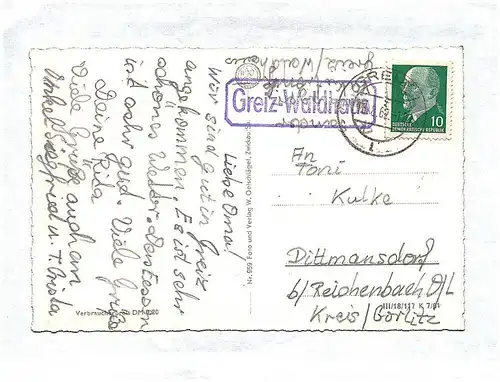 Liebe Oma!
Wir sind gut in Greiz
angekommen. Es ist sehr
schönes Wetter. Das Essen
ist sehr gut. Viele Grüße
Deine Rita
Viele Grüße auch an
Onkel Siegfried u. T. Christa
Verbraucherpreis DM 0,20
Nr. 959 Foto und Verlag W. Oertschlägel,
Greiz/Waldhaus
Greiz-Waldhaus
GREIZ
10
DEUTSCHE
DEMOKRATISCHE REPUBLIK
An
Toni
Kulke
Dittmansdorf
b/Reichenbach O/L
Kreis/Görlitz
III/18/117 K 7/61